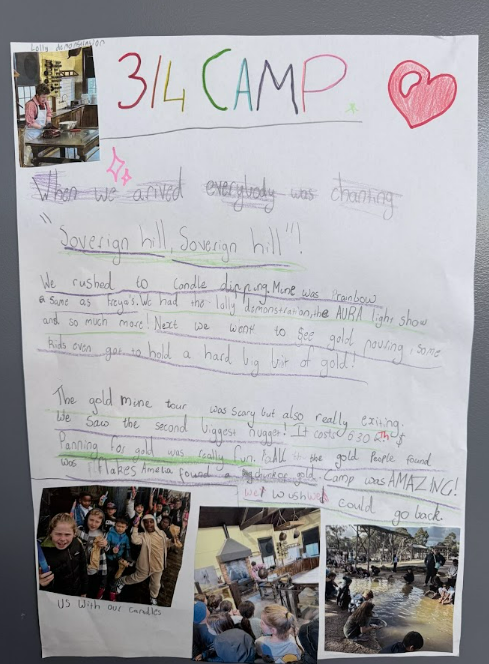 Lolly demonstration
3/4 CAMP
When we arived everybody was chanting
"Soverign hill, Soverign hill"!
We rushed to candle dipping. Mine was rainbow
same as Freya's. We had the lolly demonstration, the AURA light show
and so much more! Next we went to see gold pouring, some
kids even got to hold a hard big bit of gold!
The gold mine tour was scary but also really exiting.
We saw the second biggest nugget! It costs
Panning for gold was really fun. the gold people found
was flakes Amelia found a chunk of gold Camp was AMAZING!
we wush we could go back.
US With our candles